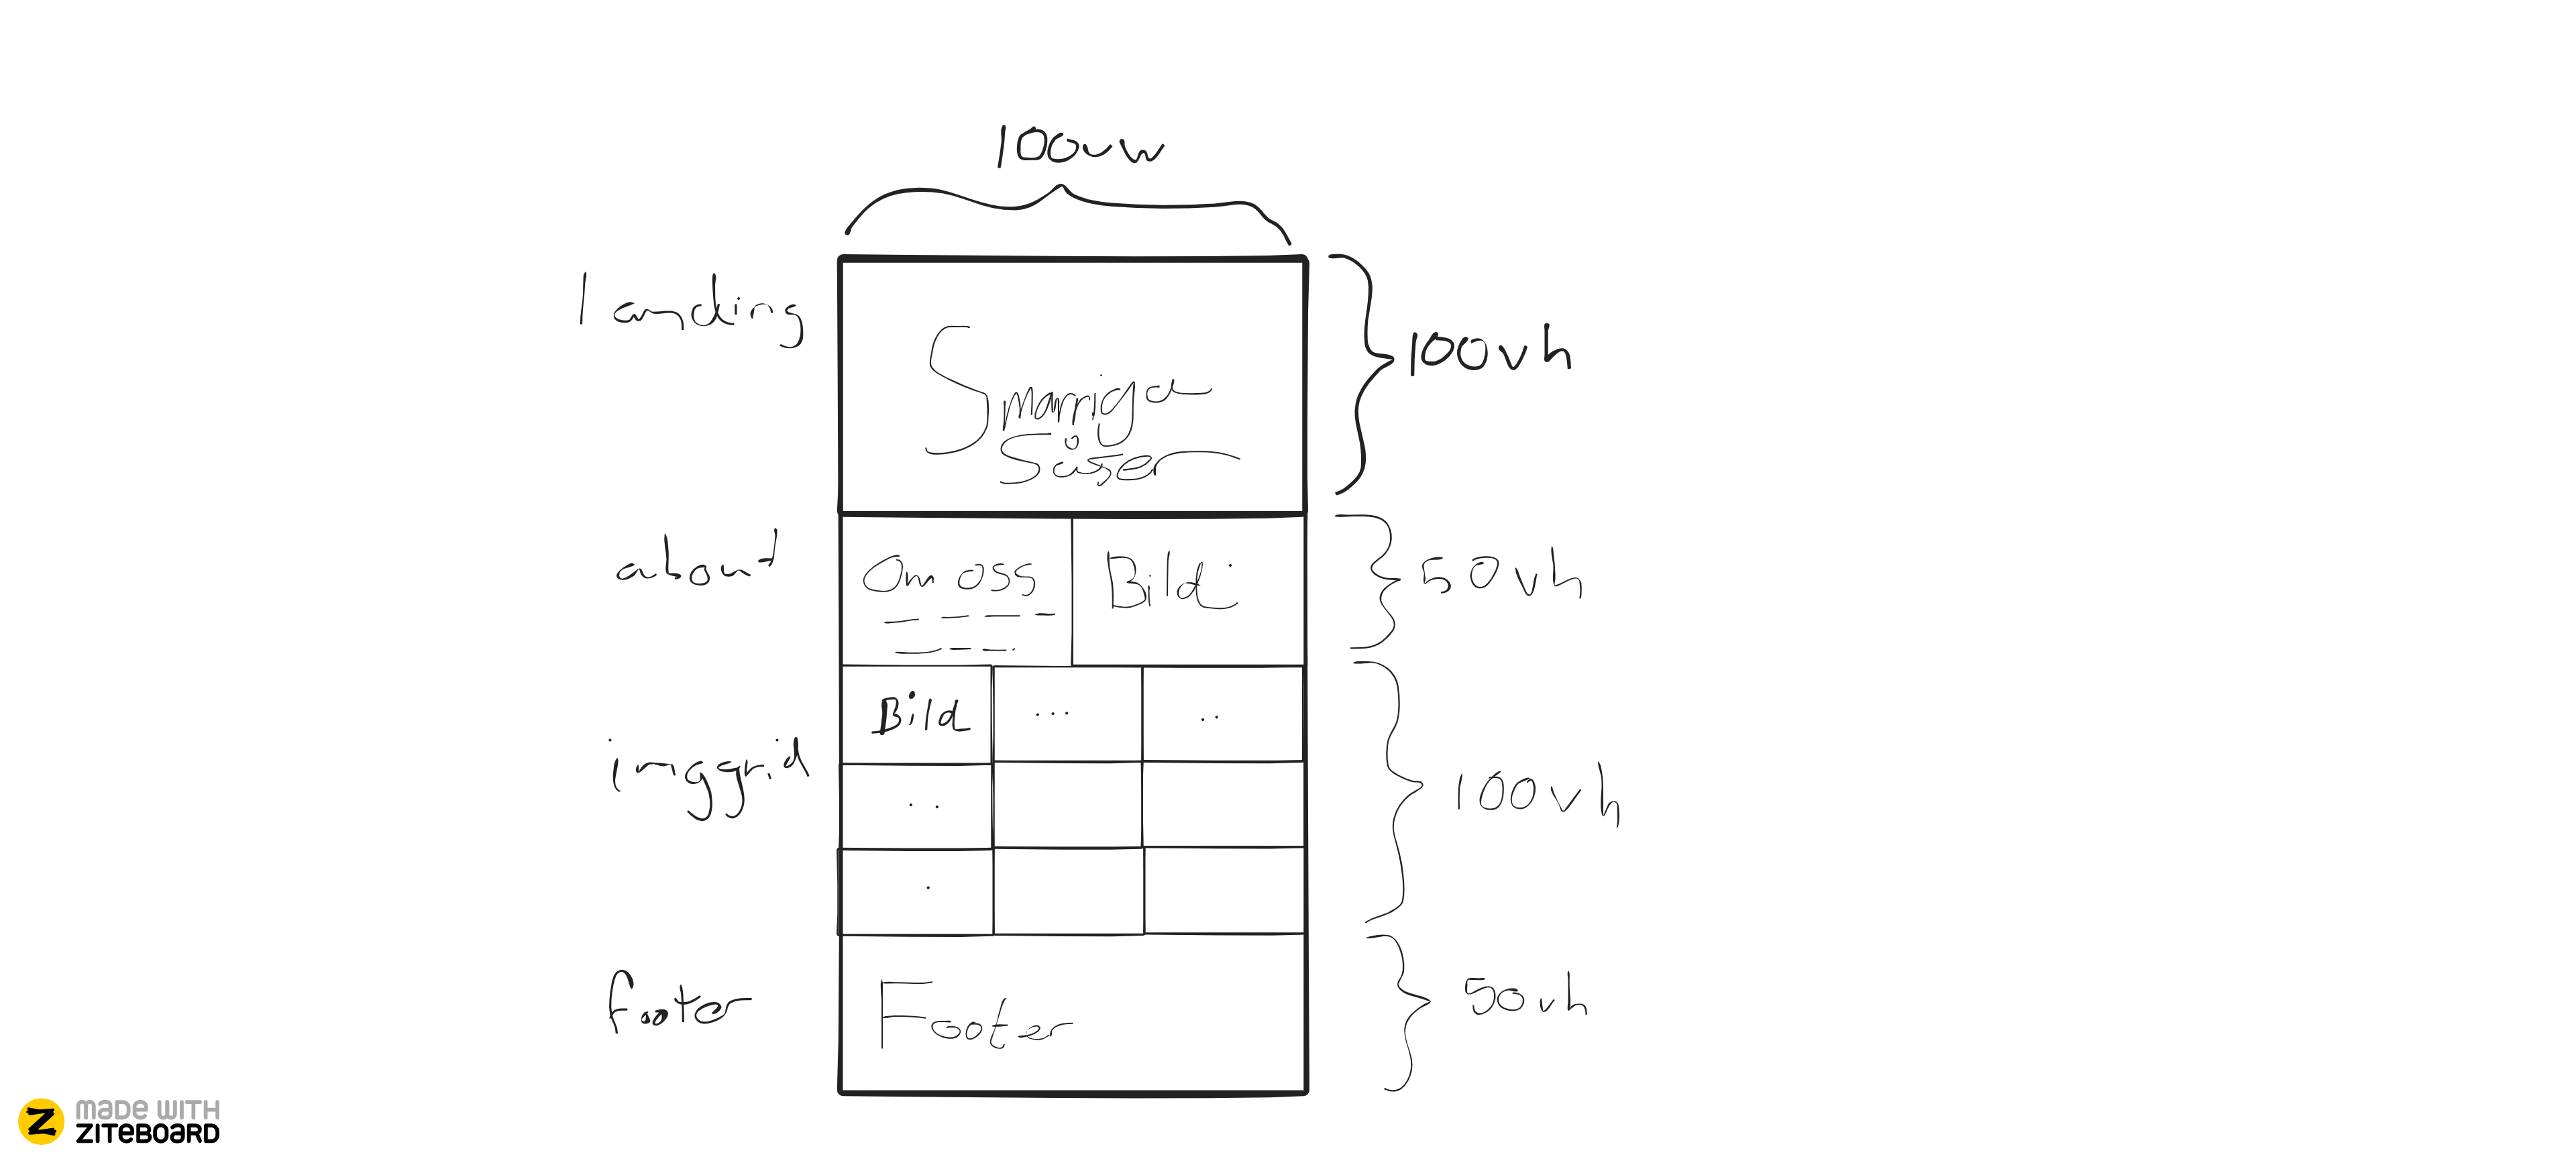 100vw
landing
Smarriga
Såser
100vh
about
Om oss
Bild
50vh
Bild
imggrid
100vh
footer
Footer
50vh
MADE WITH
ZITEBOARD